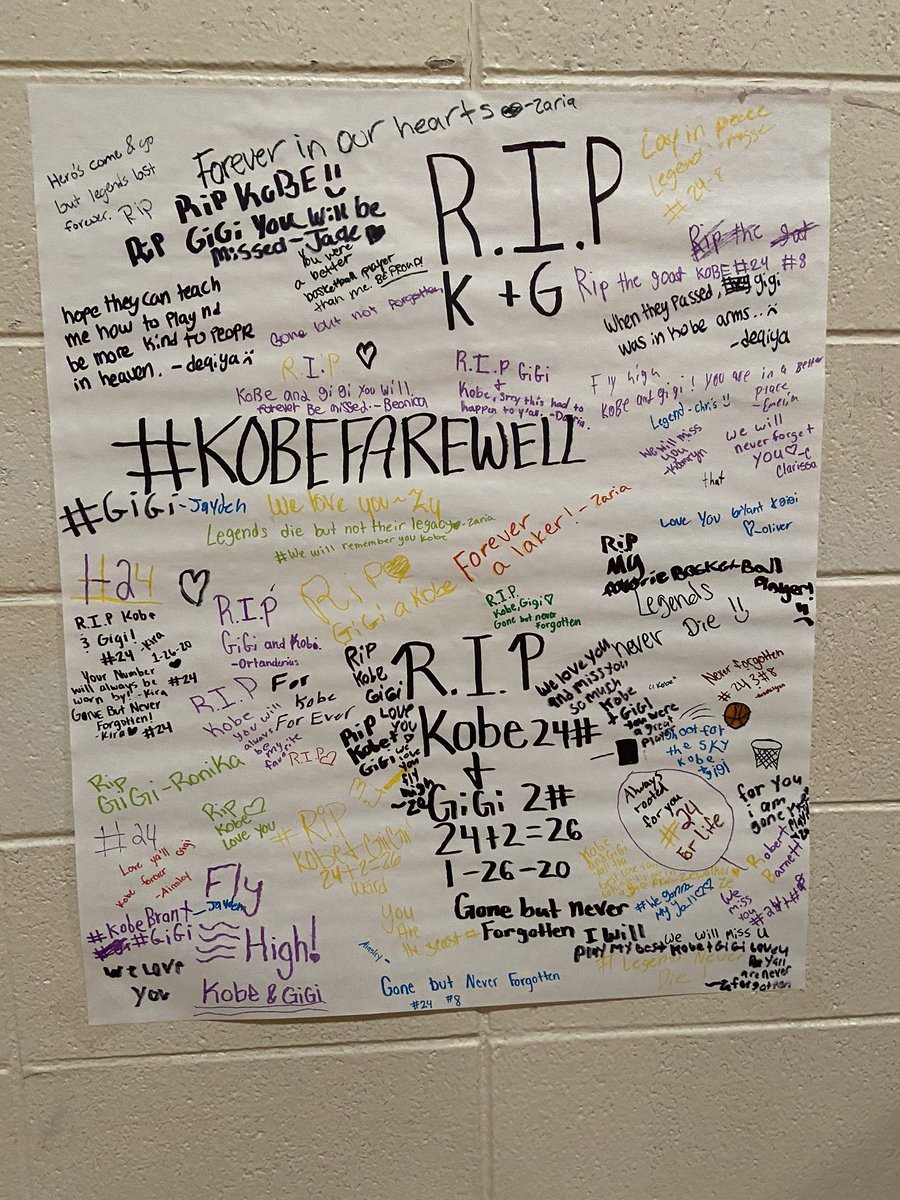 Hero's come & go
but legends last
forever. RIP
Forever in our hearts -Zaria
RIP KOBE!!
RIP GiGi You Will be
missed-Jade
You were
a better
basketball player
than me. BE PROUD!
R.I.P
K + G
Lay in peace
Legend
# 24-8
RIP the
Rip the goat KOBE #24 #8
hope they can teach
me how to play nd
be more kind to people
in heaven. -deqiya
Gone but not forgotten
When they passed, gigi
was in kobe arms..
-deqiya
R.I.P
KoBe and gigi you will
forever Be missed.-Beonka
R.I.P GiGi
+
Kobe, srry this had to
happen to y'all.
Fly high
KoBe and gigi! you are in a better
place
Legend-chris
we will miss
you
-Kamryn
we will
never forget
you -C
Clarissa
#KOBEFAREWELL
#GiGi-Jayden
We love you~Zy
Legends die but not their legacy -Zaria
#We will remember you Kobe
Forever
a laker! -Zaria
that
Love You bryant & gigi
-oliver
#24
R.I.P Kobe
& Gigi!
#24 -Kira
1-26-20
Your Number
will always be
worn by! -Kira #24
Gone But Never
Forgotten!
-Kira #24
R.I.P
GiGi and Kobe.
-Ortandenius
RIP
GiGi a Kobe
R.I.P.
Kobe, Gigi
Gone but never
forgotten
RIP
MY
BasketBall
Player!!
Legends
never Die !!
R.I.P
Kobe
you will
always
be
my
favorite
For
Kobe
For Ever
R.I.P
RIP
Kobe
GiGi
RIP LOVE
Kobe + You
GiGi we
love
you
fly
high
R.I.P
Kobe 24#
+
GiGi 2#
24+2=26
1-26-20
we love you
and miss you
so much
Kobe
+ GiGi
you were
a great
player
"Kobe"
Never forgotten
#24 3#8
Shoot for
the SKY
Kobe
+gigi
Rip
GiiGii-Ronika
#24
RIP
Kobe
Love you
# RIP
Kobe+GiiGii
24+2=26
weird
Always
rooted
for you
#24
For Life
for You
i am
gone
Robert
Barnett
Love ya'll Gigi
Kobe forever - Ainsley
Fly
High!
Kobe & GiGi
#KobeBrant-Jayden
#GiGi
We Love
You
You
Are
the beast
Ainsley-
Gone but Never
Forgotten
#We gonna
My
We
miss
you
#24+#8
I Will
play My best Kobe+GiGi
We will Miss u
Y'all
are never
forgotten
# Legends Never
Die
Gone but Never Forgotten
#24 #8